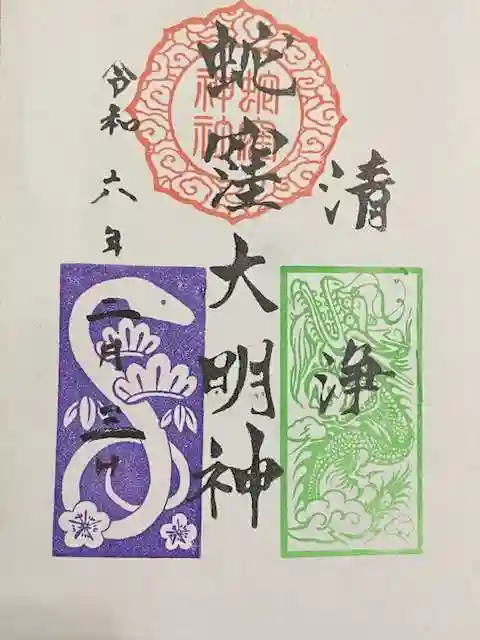 清浄
蛇窪大明神
令和六年二月三日
蛇窪
神社